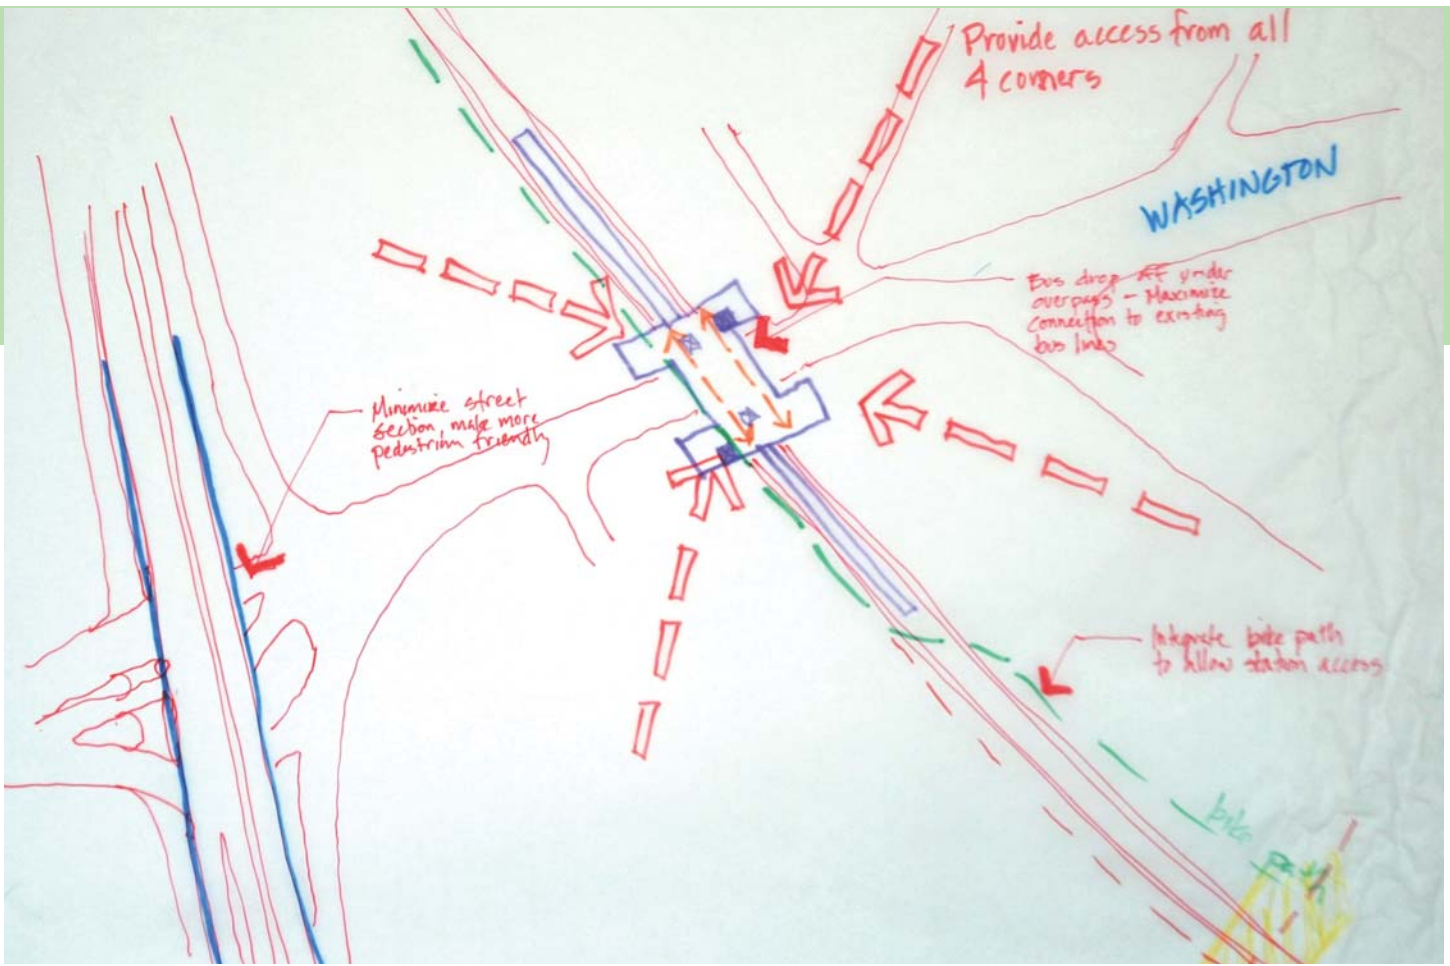 Provide access from all
4 corners
WASHINGTON
Bus drop off under
overpass - Maximize
connection to existing
bus lines
Minimize street
section, make more
pedestrian friendly
Integrate bike path
to allow station access
bike
Path